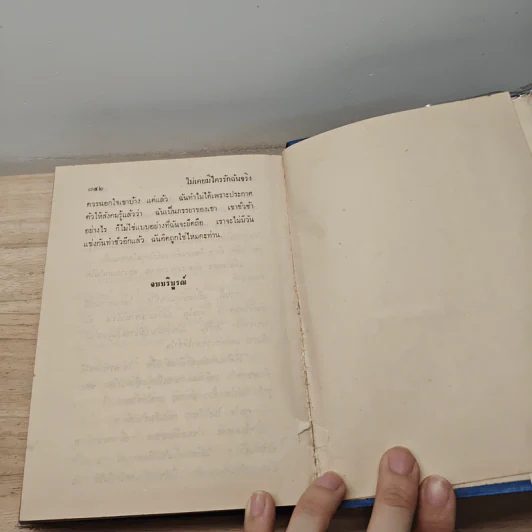 ๓๔๒
ไม่เคยมีใครรักฉันจริง
ควรนอกใจเขาบ้าง แต่แล้ว ฉันทำไม่ได้เพราะประกาศ
ตัวให้สังคมรู้แล้วว่า ฉันเป็นภรรยาของเขา เขาชั่วช้า
อย่างไร ก็ไม่ใช่แบบอย่างที่ฉันจะยึดถือ เราจะไม่มีวัน
แข่งกันทำชั่วอีกแล้ว ฉันคิดถูกใช่ไหมคะท่าน.
จบบริบูรณ์